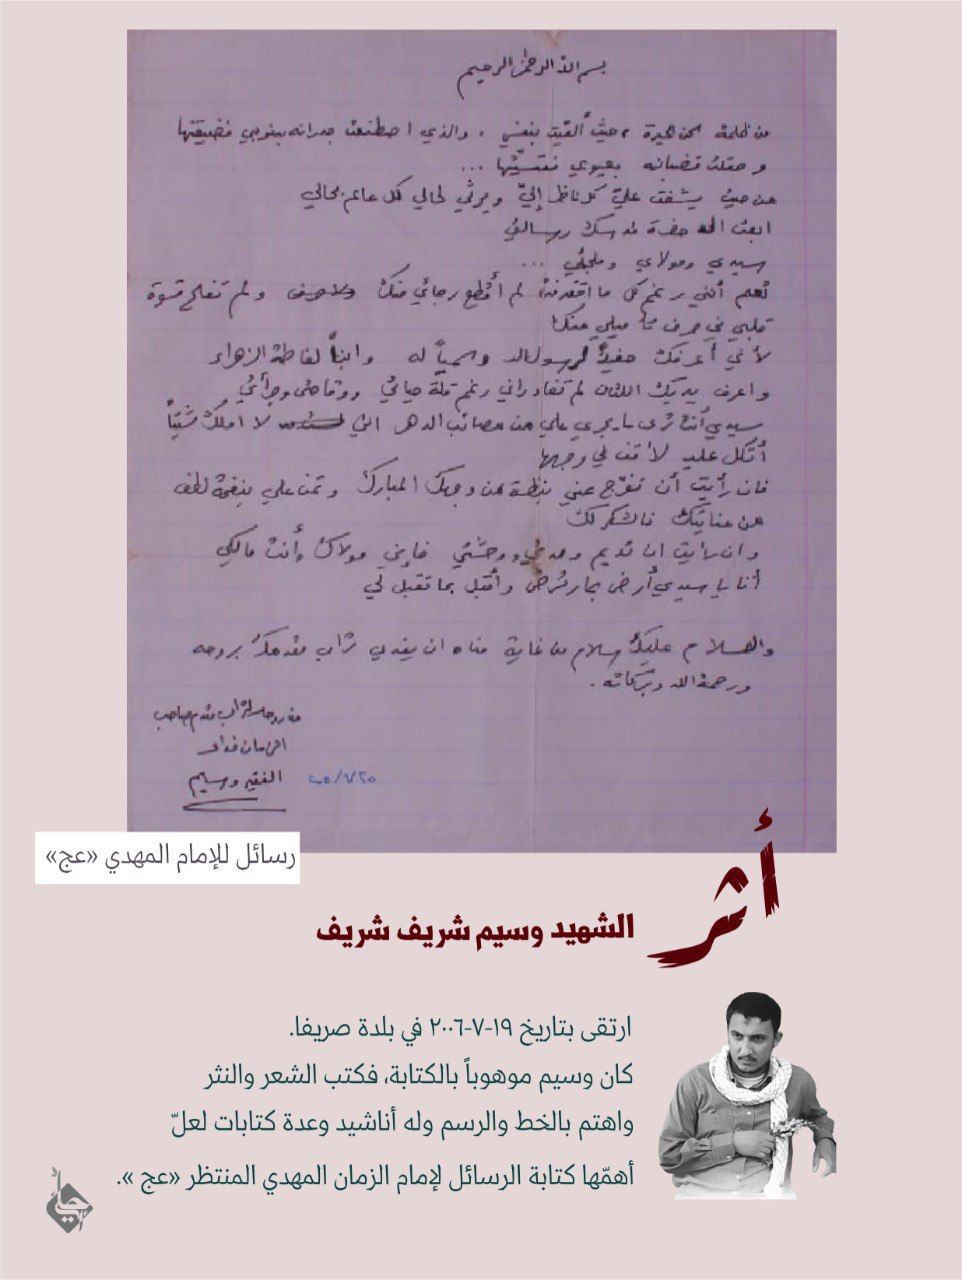 بسم الله الرحمن الرحيم
من ظلمة الحيرة، حيث ألقيت بنفسي، والذي اصطنعت جدرانه بذنوبي فضيقتها
وصقلت قضبانه بعيوبي فقسّيتها ...
من حيث يشفق عليّ كل ناظر إليّ ويرثي لحالي كل عالم بحالي
ابعث إلى حضرة قدسك رسالتي
سيدي ومولاي وملجئي ...
تعلم أنني رغم كل ما اقترفت لم أقطع رجائي منك ولم تفلح قسوة
قلبي في حرف تأميلي عنك
لأني أعرفك حفيداً لرسول الله وسمياً له وابناً لفاطة الزهراء
واعرف يديك اللتان لم تغادراني رغم قلة حيائي ووقاحتي وجرأتي
سيدي أنت ترى ما يجري علي من مصائب الدهر التي لا املك شيئاً
أتكل عليه لأقف في وجهها
فان رأيت أن تفرّج عني بنظرة من وجهك المبارك وتمن علي بنفحة لطف
من عنايتك فالشكر لك
وان رأيت ان تديم ووحشتي فإنني مولاك وأنت مالكي
أنا يا سيدي أرض بما ترضى وأقبل بما تقبل لي
والسلام عليك سلام من غاية مناه ان يفدي تراب مقدمك بروحه
ورحمة الله وبركاته.
من روحه لتراب مقدم صاحب
الزمان فداء
الفقير وسيم
٢٠/٧/٠٥
رسائل للإمام المهدي «عج»
أثر
الشهيد وسيم شريف شريف
ارتقى بتاريخ ١٩-٧-٢٠٠٦ في بلدة صريفا.
كان وسيم موهوباً بالكتابة، فكتب الشعر والنثر
واهتم بالخط والرسم وله أناشيد وعدة كتابات لعلّ
أهمّها كتابة الرسائل لإمام الزمان المهدي المنتظر «عج ».